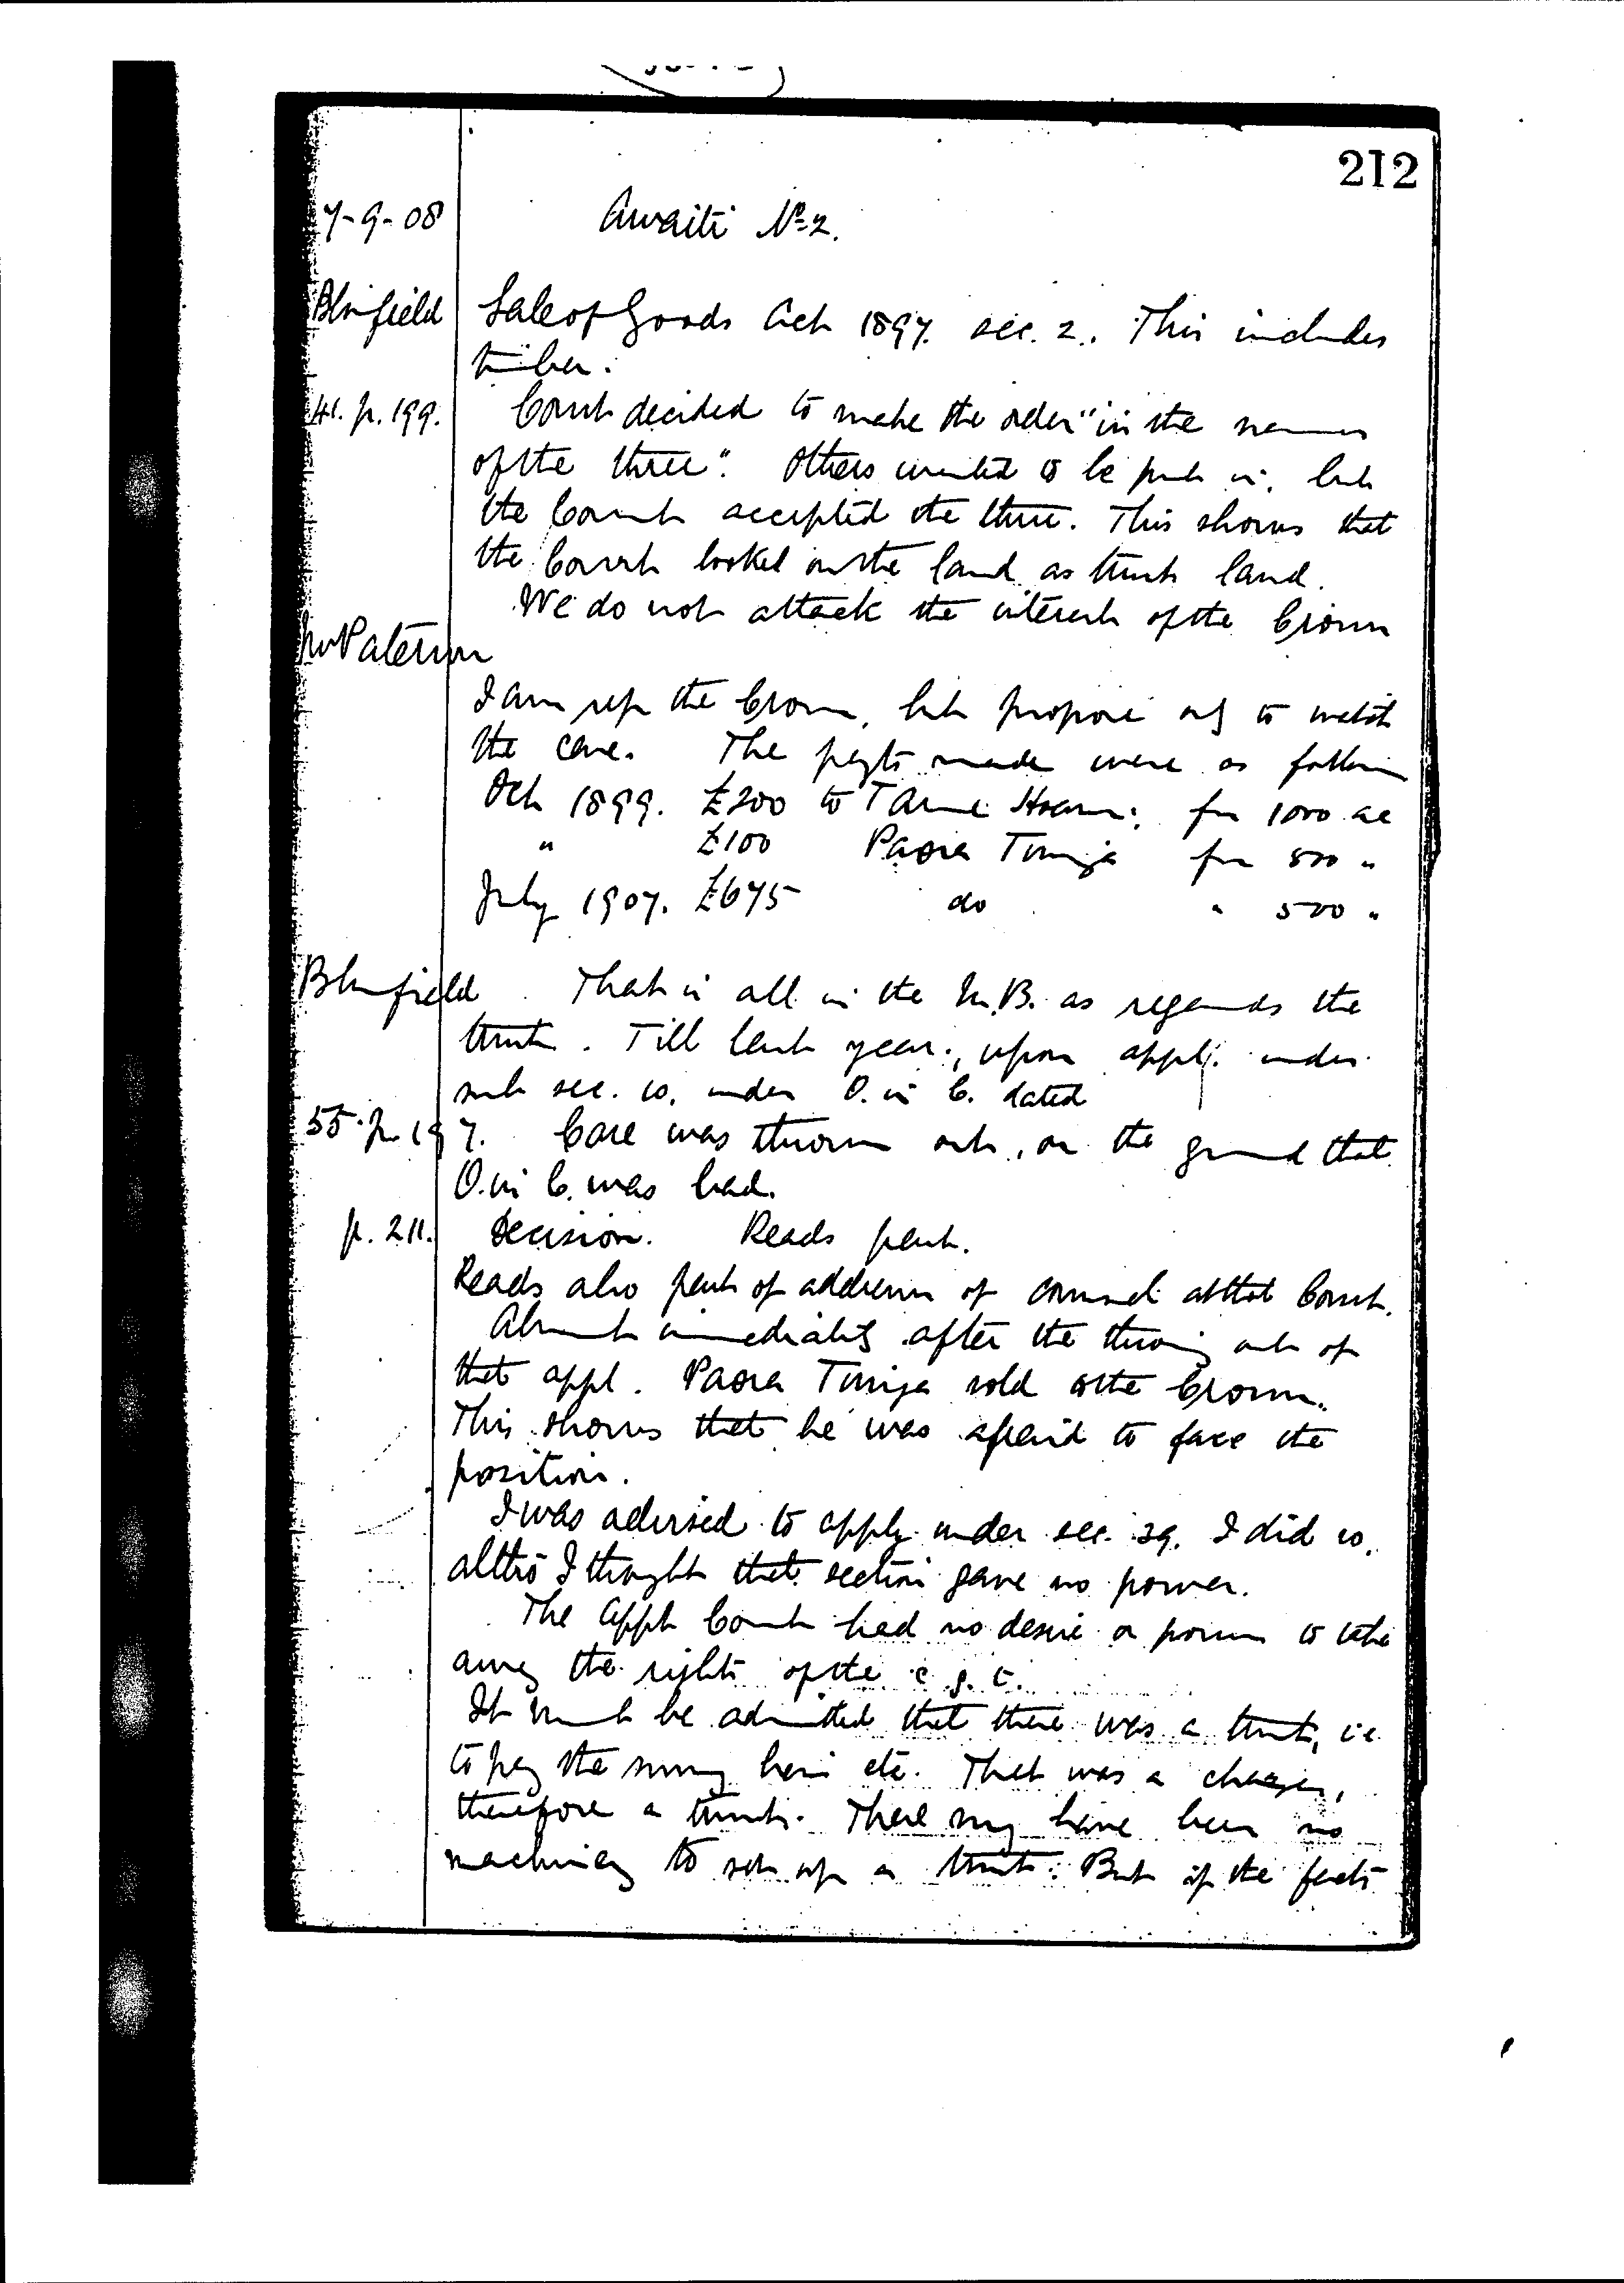 212
7-9-08 Awaiti No 2.
Blomfield Sale of Goods Act 1897. sec. 2. This includes
timber.
41. p. 199. Court decided to make the order "in the names
of the three". Others wanted to be put in, but
the Court accepted the three. This shows that
the Court looked on the land as trust land.
We do not attack the interest of the Crown
Mr Paterson
I am rep the Crown, but propose only to watch
the case. The payts made were as follows
Oct 1899. £200 to for 1000 ac
" £100 Paora Tiunga for 500 "
July 1907. £675 do " 500 "
Blomfield That is all in the M.B. as regards the
trust. Till last year, upon appl. under
sub sec. 10. under O. in C. dated
55. p. 197. Case was thrown out, on the ground that
O. in C. was bad.
p. 211. Decision. Reads part.
Reads also part of address of counsel at that Court.
Almost immediately after the throwing out of
that appl. Paora Tiunga sold to the Crown.
This shows that he was afraid to face the
position.
I was advised to apply under sec. 39. I did so,
altho I thought that section gave no power.
The Appt Court had no desire or power to take
away the rights of the c. q. t.
It must be admitted that there was a trust, i.e.
to pay the survey lien etc. That was a charge,
therefore a trust. There may have been no
machinery to set up a trust. But if the facts